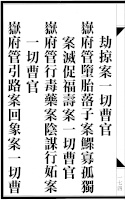 劫掠案一切曹官
嶽府管墮胎落子案鰥寡孤獨
案滅促福壽案一切曹官
嶽府管行毒藥案陰謀行妬案
一切曹官
嶽府管引路案回象案一切曹